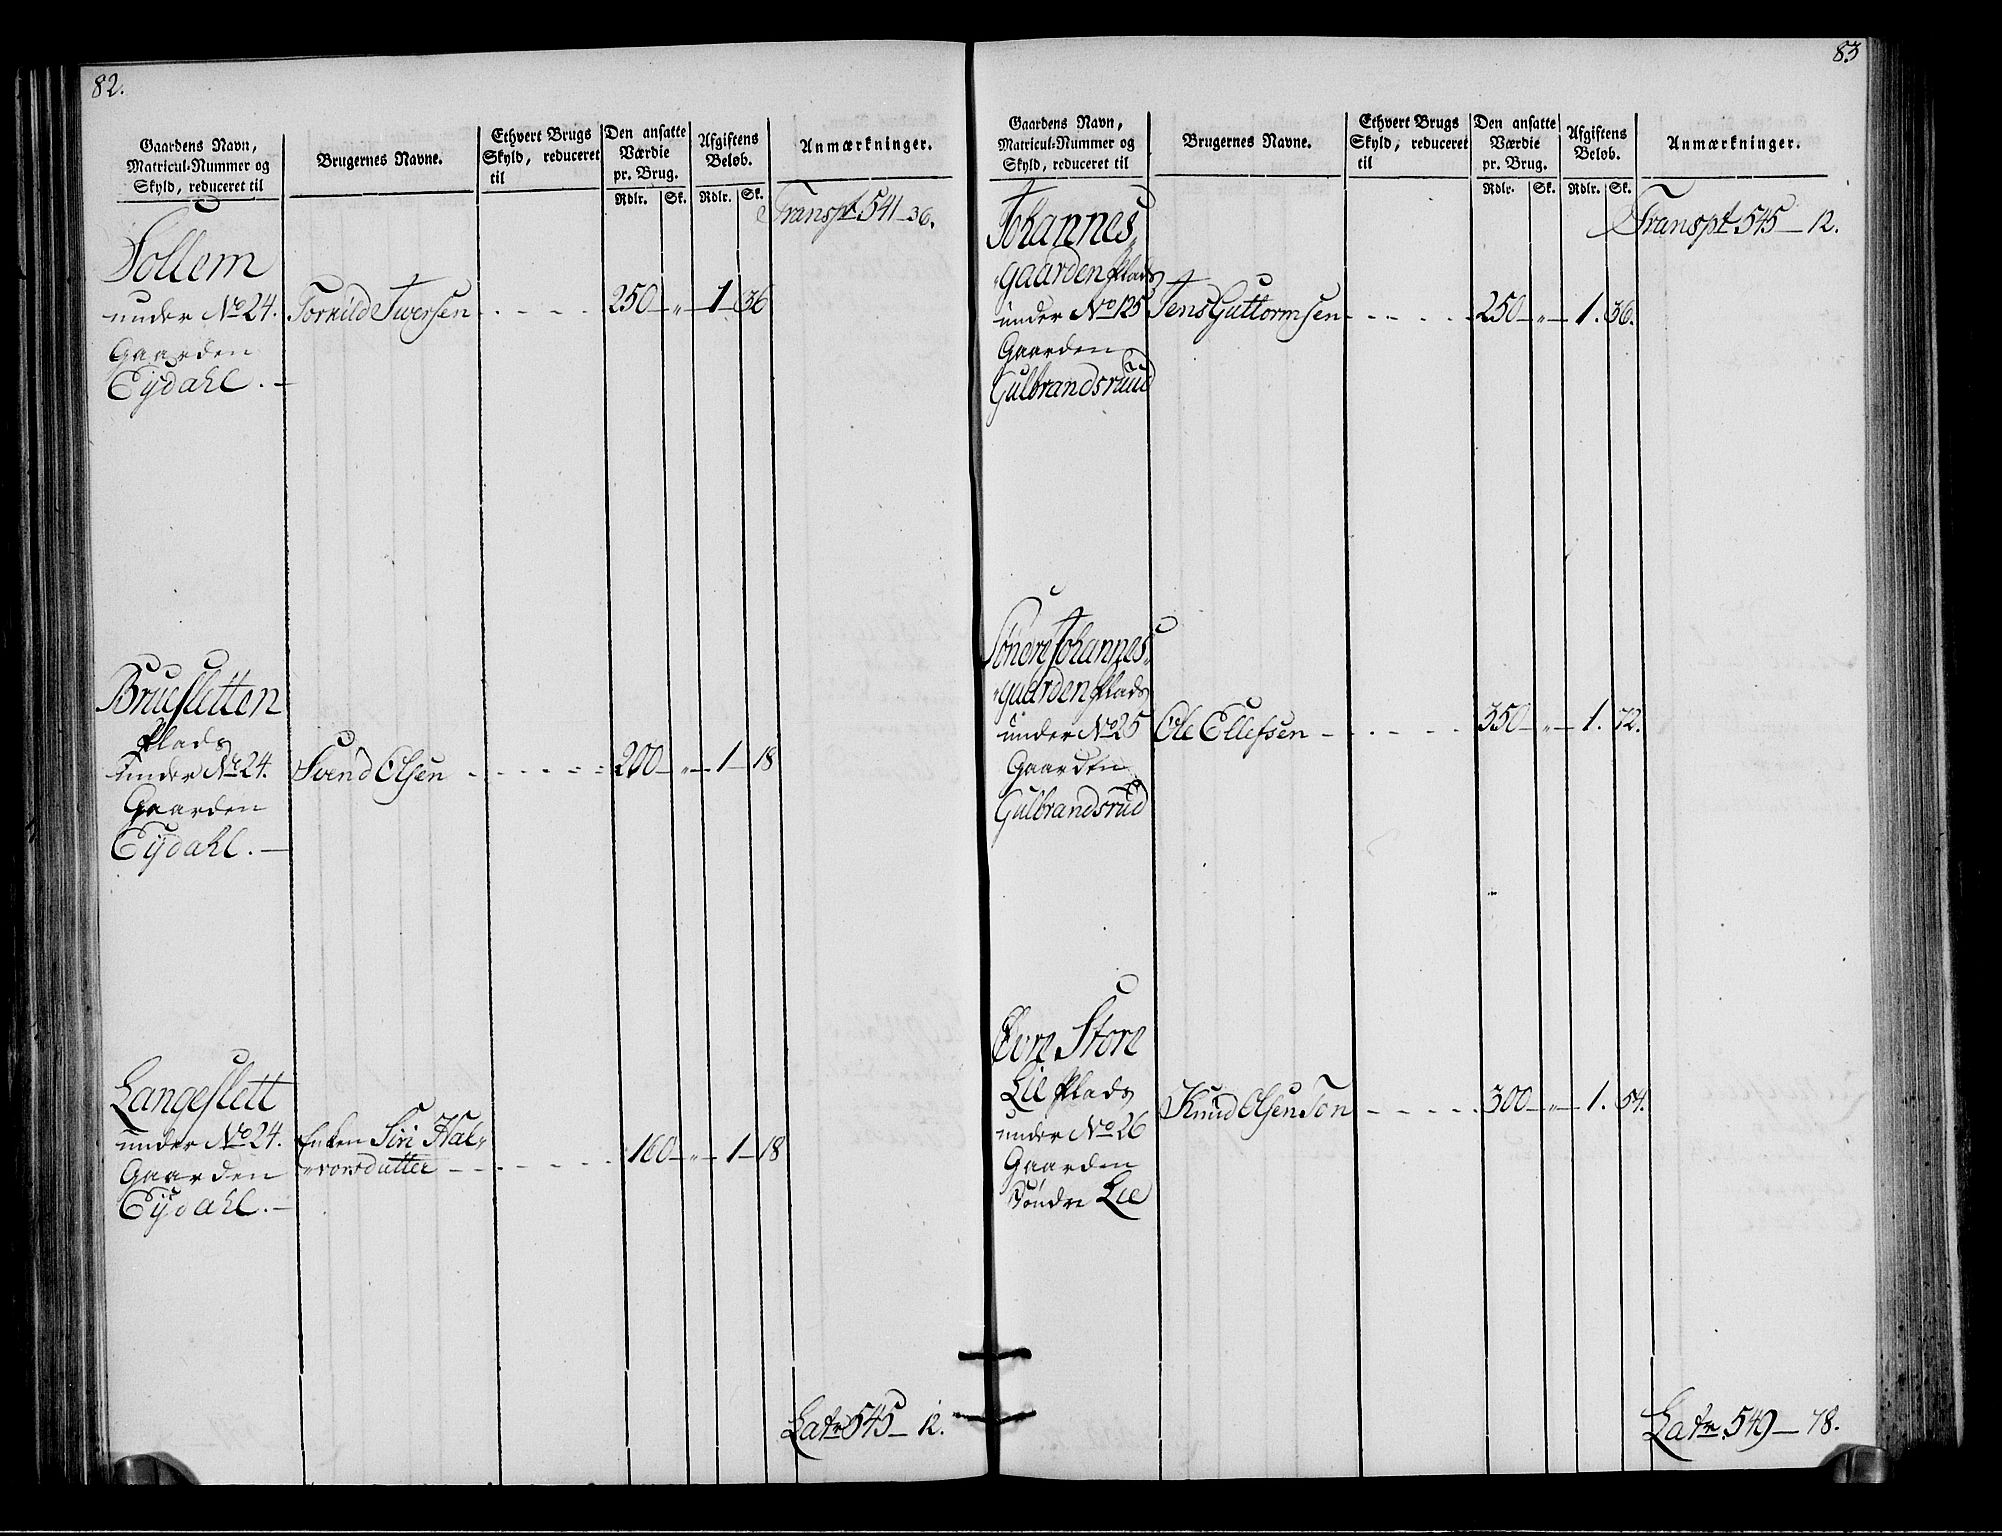 82.
Gaardens Navn,
Matricul-Nummer og
Skyld, reduceret til
Brugernes Navne.
Ethvert Brugs
Skyld, reduceret
til
Den ansatte
Værdie
pr. Brug.
Rdlr. Sk.
Afgiftens
Beløb.
Rdlr. Sk.
Anmærkninger.
Transpt 541 – 36.
Sollem
under No 24. Torkild Iversen - - - - 250 – „ – 1 – 36
Gaarden
Eijdahl. –
Bruesletten
Plads
under No 24. Svend Olsen - - - - - - 200 – „ – 1 – 18
Gaarden
Eijdahl. –
Langeslett
under No 24. Enken Siri Hal-
Gaarden -vorsdatter - - - - - 160 – „ – 1 – 18
Eijdahl. –
Latr 545 – 12.
83
Gaardens Navn,
Matricul-Nummer og
Skyld, reduceret til
Brugernes Navne.
Ethvert Brugs
Skyld, reduceret
til
Den ansatte
Værdie
pr. Brug.
Rdlr. Sk.
Afgiftens
Beløb.
Rdlr. Sk.
Anmærkninger.
Transpt 545 – 12.
Johannes-
-gaarden Plads
under No 125 Jens Guttormsen - - - - - 250 – „ – 1. 36.
Gaarden
Gulbrandsruud
Søndre Johannes-
-gaarden Plads
under No 25 Ole Ellefsen - - - - - 350 – „ – 1. 72.
Gaarden
Gulbrandsrud
Øvre Store
Lie Plads
under No 26 Knud Olsen Ton - - - - 300 – „ – 1. 54.
Gaarden
Søndre Lie
Latr 549 – 78.